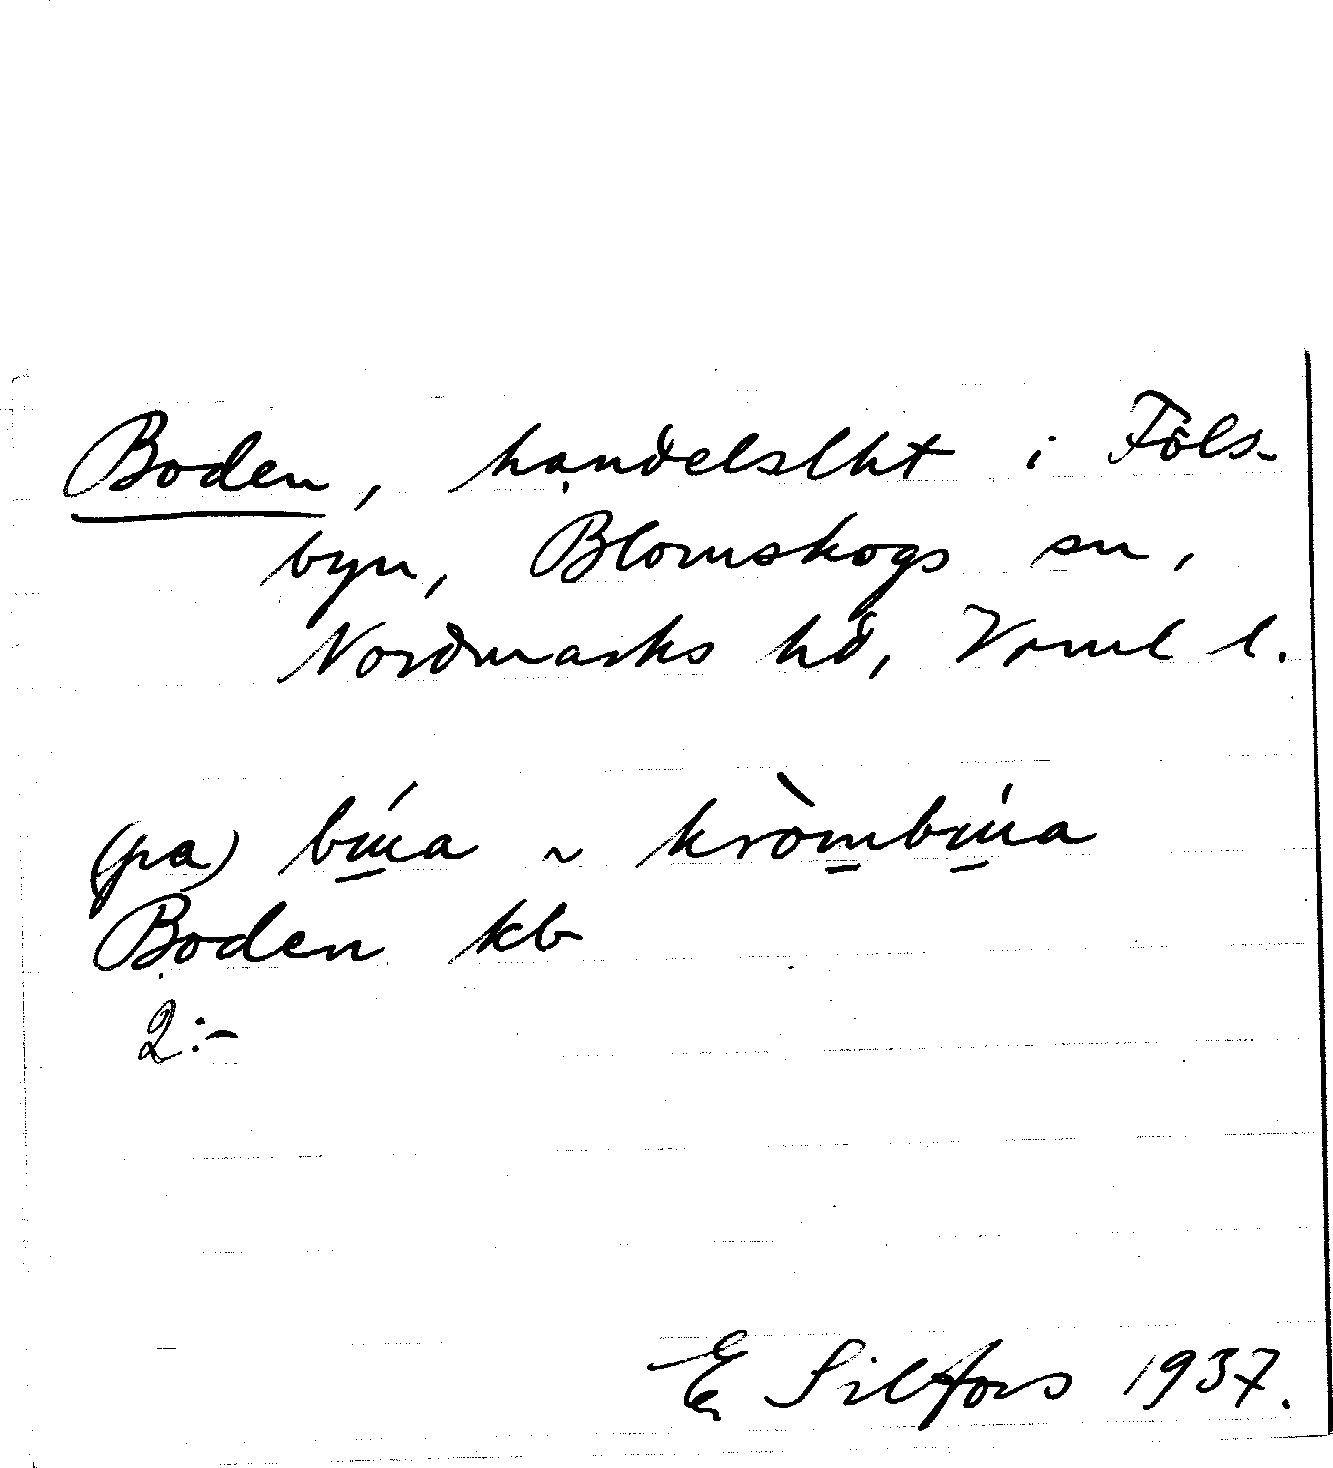 Boden, handelslht i Föls-
byn, Blomskogs sn,
Nordmarks hd, Värml l.
(pa) búa ~ kròmbúa
Boden kb
2:-
E Silfors 1937.